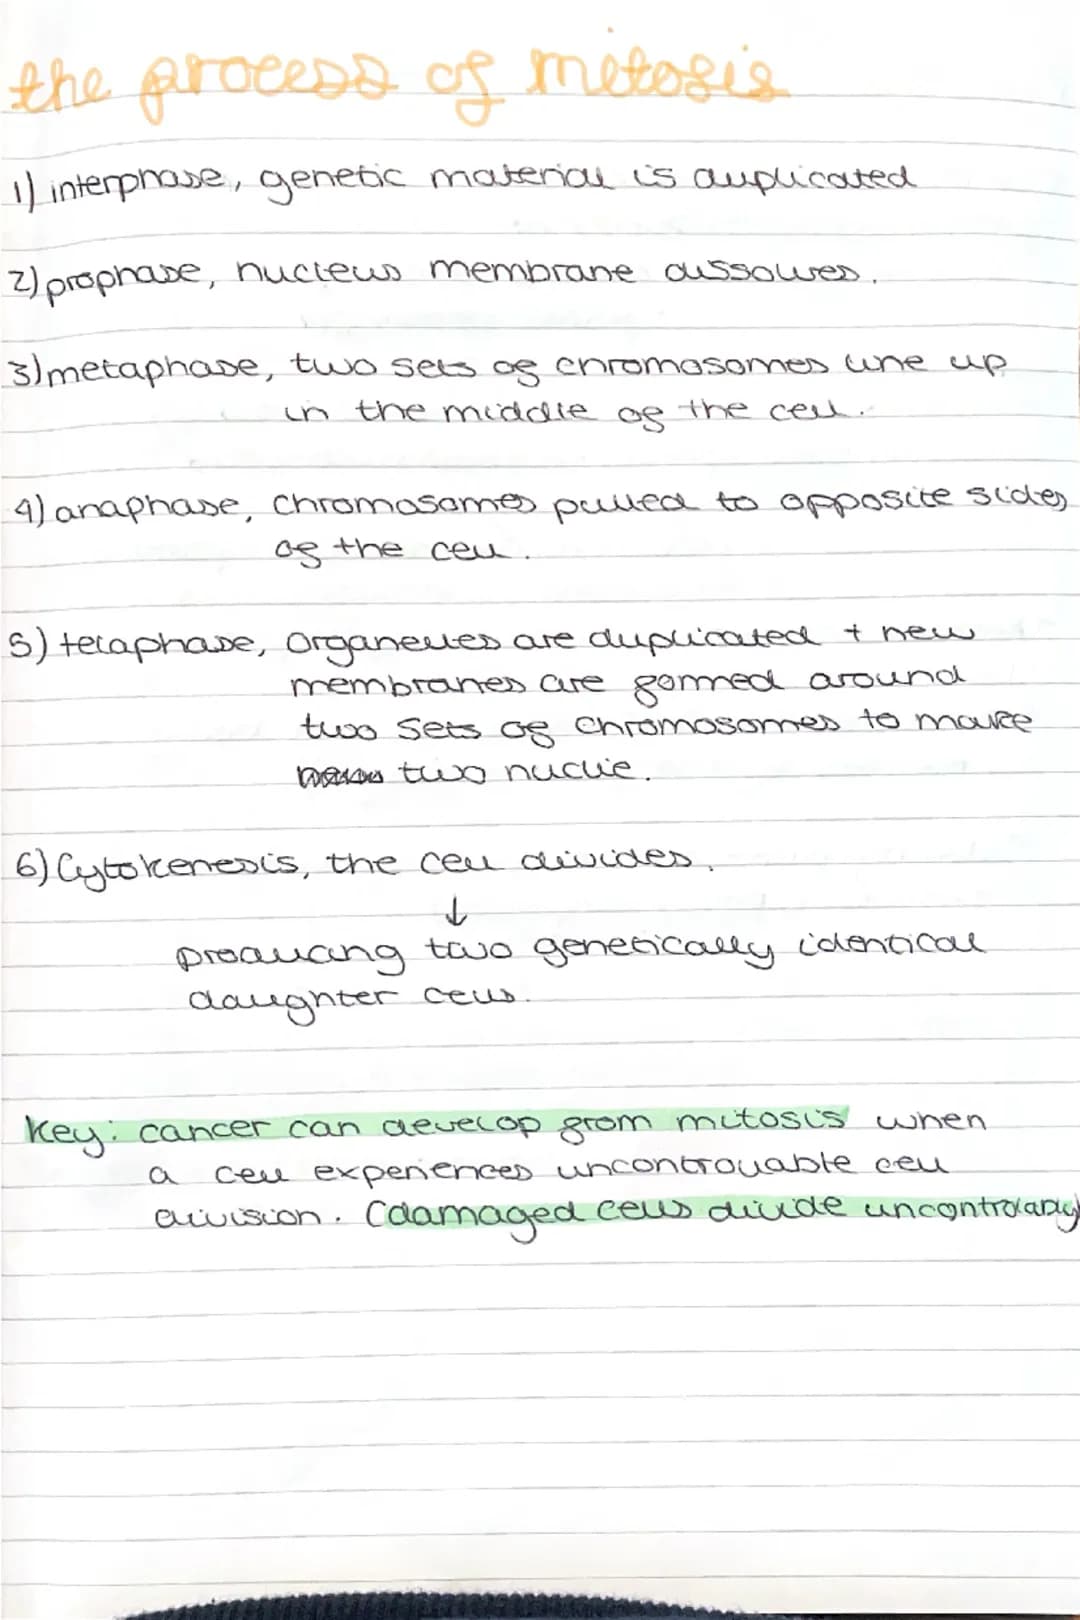 the process of mitosis
1) interphase, genetic material is duplicated
2) prophase, nucleus membrane dissolves.
3) metaphase, two sets of chromosomes line up
in the middle of the cell.
4) anaphase, chromosomes pulled to opposite sides
of the cell.
5) telaphase, organelles are duplicated + new
membranes are formed around
two sets of chromosomes to make
two nuclie.
6) Cytokenesis, the cell divides.
↓
producing two genetically identical
daughter cells.
Key: cancer can develop from mitosis when
a cell experiences uncontrollable cell
division. (damaged cells divide uncontrolably)